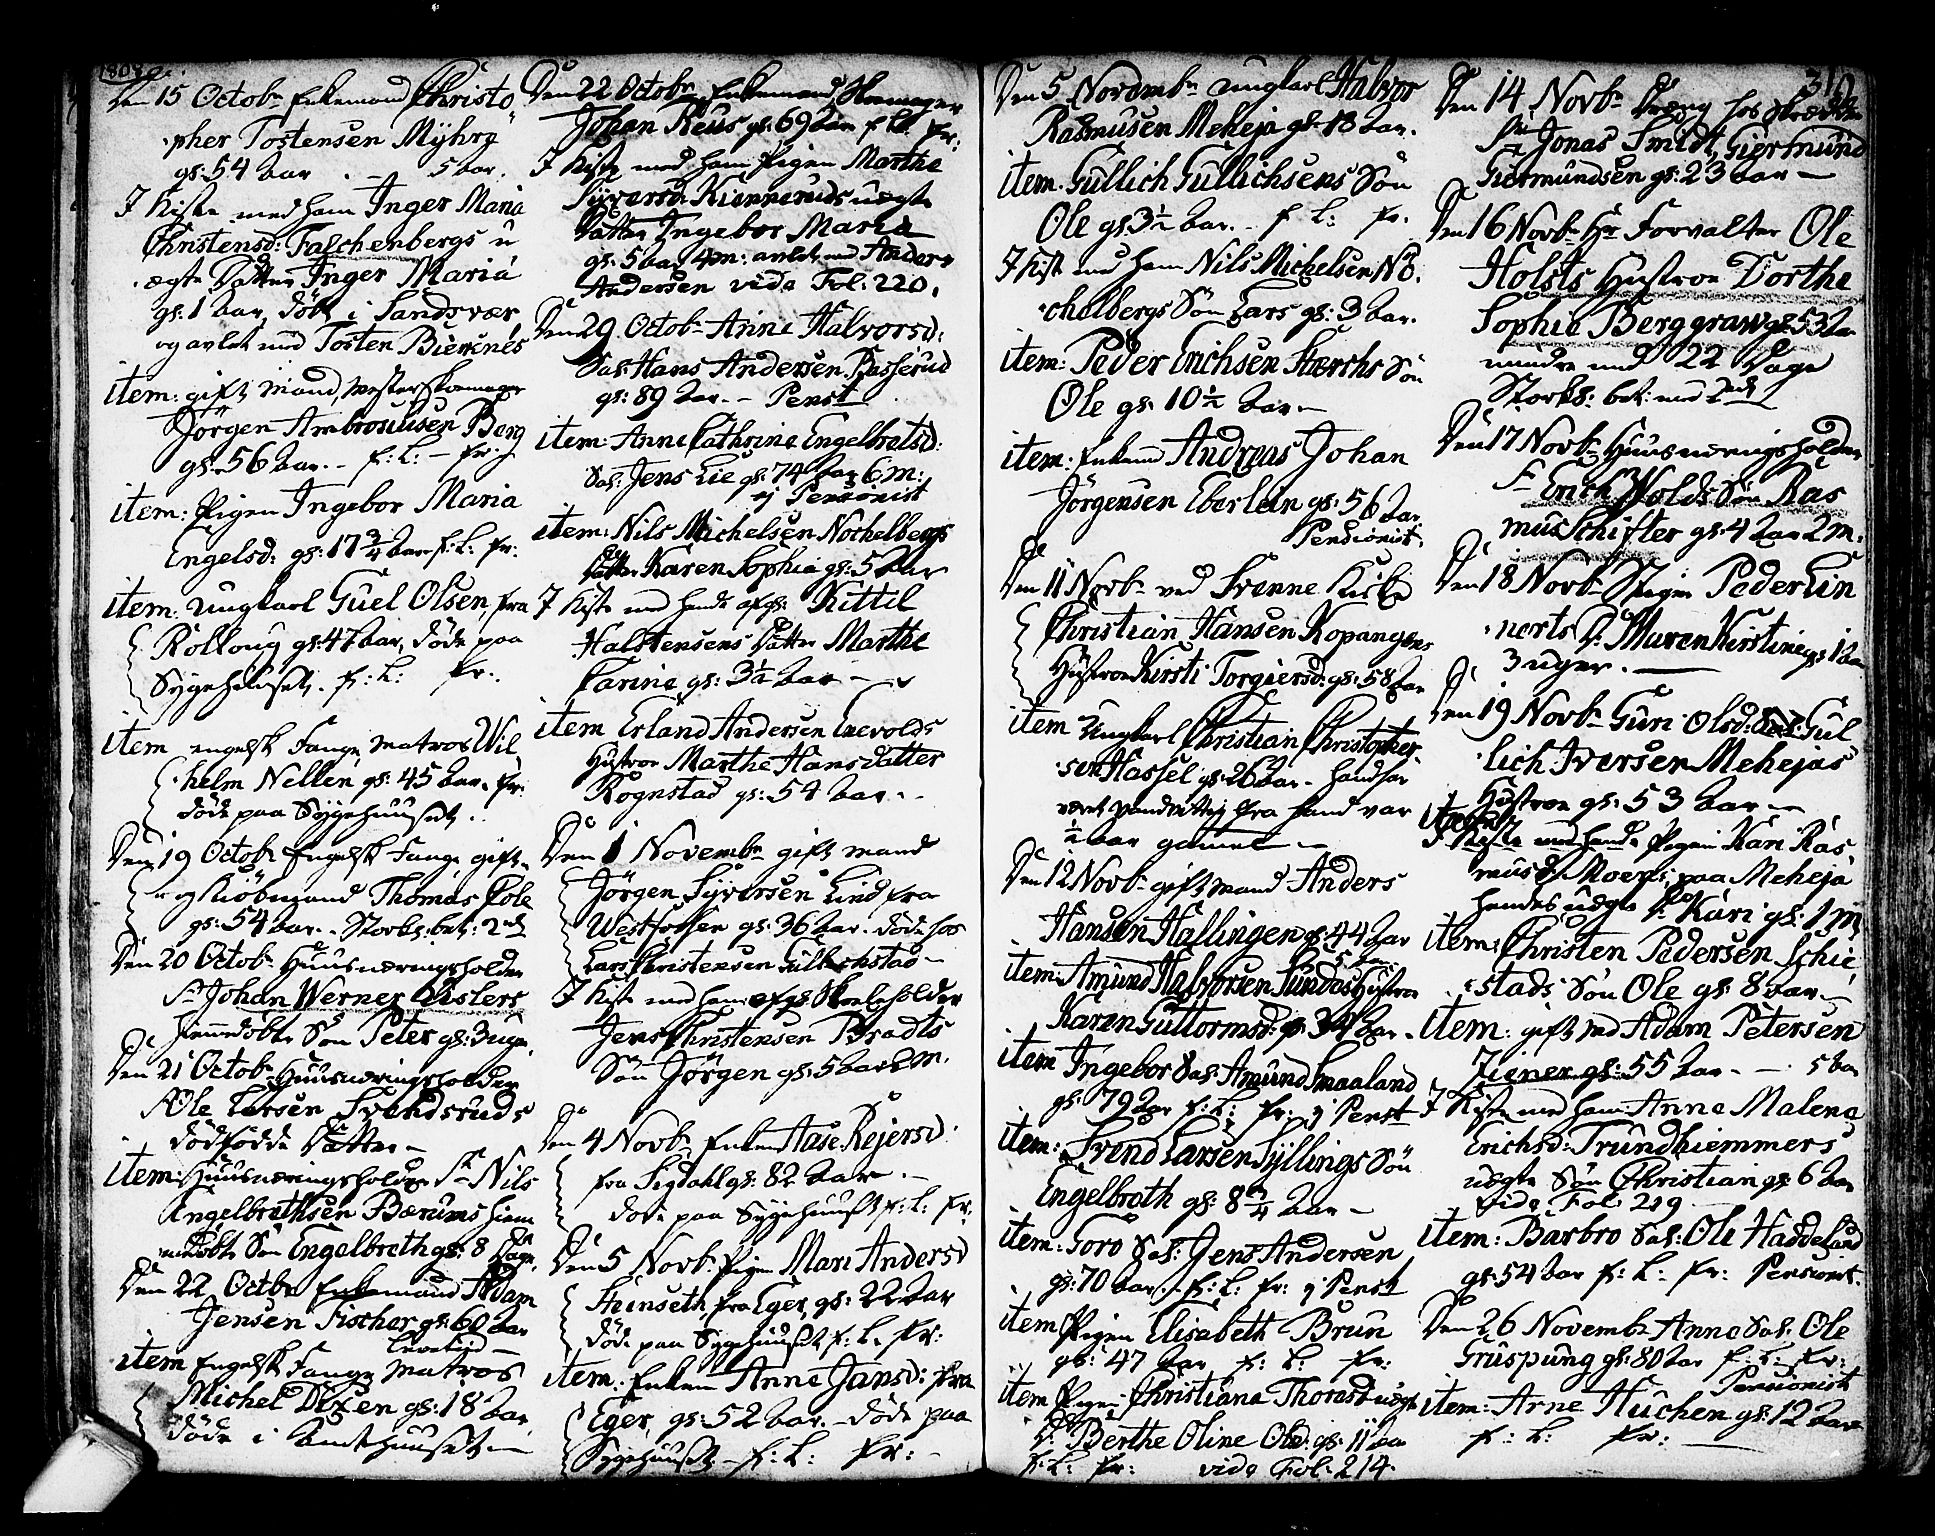 1808
Den 15 Octobr Enkemand Christo
pher Tostensen Myhra
gs: 54 Aar - 5 aar.
I Kiste med ham Inger Maria
Christensd: Falchenbergs u
ægte Datter Inger Maria
gs: 1 Aar, döbt i Sandsvær
og avlet med Tosten Bierenes
item: gift Mand, Mester Skomager
Jörgen Ambrosiusen Berg
gs. 56 Aar. - f: L: - fr:
item: Pigen Ingebor Maria
Engelsd: gs: 17 3/4 Aar f: L: fr:
item: Ungkarl Guel Olsen, fra
Rolloug gs: 47 Aar, döde paa
Sygehuuset. f: L: fr:
item engelsk Fange Matros Wil
helm Nellen gs: 45 Aar. fr:
döde paa Sygehuuset.
Den 19 Octobr Engelsk Fange gift
og Kiöbmand Thomas Cole
gs: 54 Aar. - Storkl: bet: 2 ndl
Den 20 Octobr Huusnæringsholder
Sr Johan Werner Oislers
hiemedöbte Sön Peter gs: 3 uger
Den 21 Octobr Huusnæringsholder
Sr Ole Larsen Svendsruds
dödfödde Datter -
item: Huusnæringsholder Sr Nils
Engelbrethsen Bærums hiem
medöbte Sön Engelbreth gs: 8 Dage.
Den 22 Octbr Enkemand Adam
Jensen Fischer gs: 60 Aar
item Engelsk Fange Matros
Michel Dixen gs: 18 Aar
döde i Amtshuuset -
Den 22 Octobr Enkemand Skomager
Johan Reus gs: 69 Aar f: L: fr:
I Kiste med ham Pigen Marthe
Syversd: Kiennerudsuægte
Datter Ingebor Maria
gs: 5 aar 4 m: avlet med Anders
Andersen vide Fol: 220.
Den 29 Octobr Anne Halvorsd:
Sal: Hans Andersen Basserud
gs: 89 Aar. - Penst
item: Anne Cathrine Engelbretsd:
Sal: Jens Lie gs: 74 Aar 6 M:
ej Pensionist
item: Nils Michelsen Nochelbergs
Datter Karen Sophia gs: 5 Aar
I Kiste med hende afgs: Kittil
Halstensens Datter Marthe
Carine gs: 3 1/2 Aar -
item Erland Andersen Enevolds
Hustroe Marthe Hansdatter
Rognstad gs: 54 Aar. -
Den 1 Novembr gift Mand
Jörgen Syversen Lind fra
Westfossen gs: 36 Aar. döde hos
Lars Christensen Gullichstad -
I Kiste med ham afgs Skoeleholder
Jens Christensen Bradts
Sön Jörgen gs: 5 Aar 8 M.
Den 4 Novbr Enken Aase Rejersd:
fra Sigdahl gs: 82 Aar. -
döde paa Sygehuuset f: L: fr:
Den 5 Novbr Pigen Mari Andersd
Steinseth, fra Eger, gs: 22 Aar
döde paa Sygehuuset f: L. fr:
item: Enken Anne Jansd: fra
Eger, gs: 52 Aar. - döde paa
Sygehuuset - f: L: fr: -
Den 5 Novembr Ungkarl Halvor
Rasmusen Meheja gs 18 Aar.
item: Gullich Gullichsens Sön
Ole gs 3 1/2 Aar. - f: L: fr.
I Kiste med ham Nils Michelsen No
chelbergs Sön Lars gs: 3 Aar.
item: Peder Erichsen Stærchs Sön
Ole gs. 10 1/2 Aar -
item: Enkemd Andreas Johan
Jörgensen Eberlein gs: 56 Aar
Pensionist.
Den 11 Novbr ved Svenne Kirke
Christian Hansen Kopangens
Hustroe Kirsti Torgiersd: gs: 58 Aar
item Ungkarl Christian Christopher
sen Hassel gs: 26 Aar - hand har
været vandvittig fra hand var
1/2 aar gamel -
Den 12 Novbr gift Mand Anders
Hansen Hallingen gs: 44 Aar
item: Amund Halvorsen Sundes Hustroe
Karen Guttormsd: gs: 34 Aar.
item Ingebor Sal: Amund Smaaland
gs: 79 Aar f: L: fr: ej Penst
item: Svend Larsen Syllings Sön
Engelbreth gs: 8 3/4 Aar -
item: Goro Sal: Jens Andersen
gs: 70 Aar. f: L: fr: ej Penst
item Pigen Elisabeth Brun
gs: 47 Aar f: L: fr:
item Pigen Christiana Thoresd uægte
D: Berthe Oline Olsd: gs: 11 Aar
f: L: fr: vide Fol: 214.
310
Den 14 Novbr Dreng hos Skredder
Sr Jonas Smidt, Giermund
Giermundsen gs: 23 Aar -
Den 16 Novbr Hr Forvalter Ole
Holsts Hustroe Dorthe
Sophie Berggraw gs 53 Aar
mindre end 22 Dage
Storkl: bet: med 2 ndl
Den 17 Novbr Huusnæringsholder
Sr Erich Wolds Sön Ras
mus Schifter gs: 4 Aar 2 m:
Den 18 Novbr Pigen Peder Lin
nerts D: Maren Kirstine gs 1 Aar
3 uger. -
Den 19 Novbr Guri Olsd: Gul
lich Iversen Mehejas
Hustroe gs: 53 Aar -
I Kiste med hende Pigen Kari Ras
musd Moens paa Meheja
hendes uægte D: Kari gs: 1 M
item: Christen Pedersen Schie
stads Sön Ole gs: 8 Aar -
item: gift Md Adam Petersen
Ziener gs: 55 Aar. - 5 Aar
I Kiste med ham Anne Malena
Erichsd: Trundhiemmers
uægte Sön Christian gs 6 Aar
vide Fol 219
item: Barbro Sal: Ole Haddeland
gs: 54 Aar f: L: fr: Pensionist.
Den 26 Novembr Anne Sal: Ole
Gruspung gs: 80 Aar f: L: fr:
Pensionist
item: Arne Huchen gs: 12 Aar
f: L: fr: -